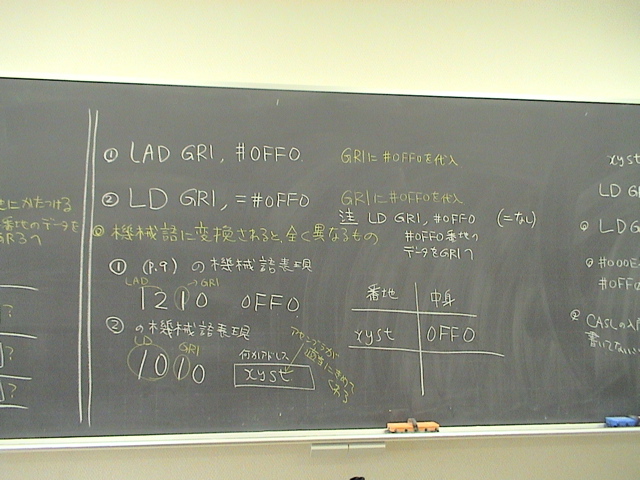 ① LAD GR1, #0FF0. GR1に#0FF0を代入
② LD GR1, =#0FF0 GR1に#0FF0を代入
注 LD GR1, #0FF0 (=なし)
#0FF0番地の
データをGR1へ
◎機械語に変換されると、全く異なるもの
① (p.9) の機械語表現
LAD →GR1
1210 0FF0
② の機械語表現
LD GR1
1010
何かアドレス
xyst
アセンブラが
適当にきめて
くれる
番地 中身
xyst 0FF0
にかたつける
番地のデータを
GR3へ
?
]?
]?
xyst
LD GR
LDG
#000E
#0FF
CASLの入
書いてない